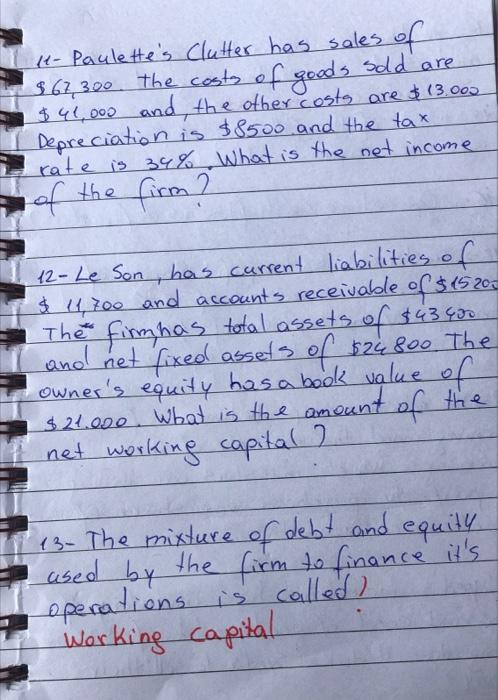 11- Paulette's Clutter has sales of
$67,300. The costs of goods sold are
$41,000 and, the other costs are $13.000
Depreciation is $8500 and the tax
rate is 34%. What is the net income
of the firm?
12- Le Son, has current liabilities of
$11,700 and accounts receivable of $1520
The firm has total assets of $43400
and net fixed assets of $24800 The
owner's equity has a book value of
$21.000. What is the amount of the
net working capital?
13- The mixture of debt and equity
used by the firm to finance it's
operations is called?
Working capital